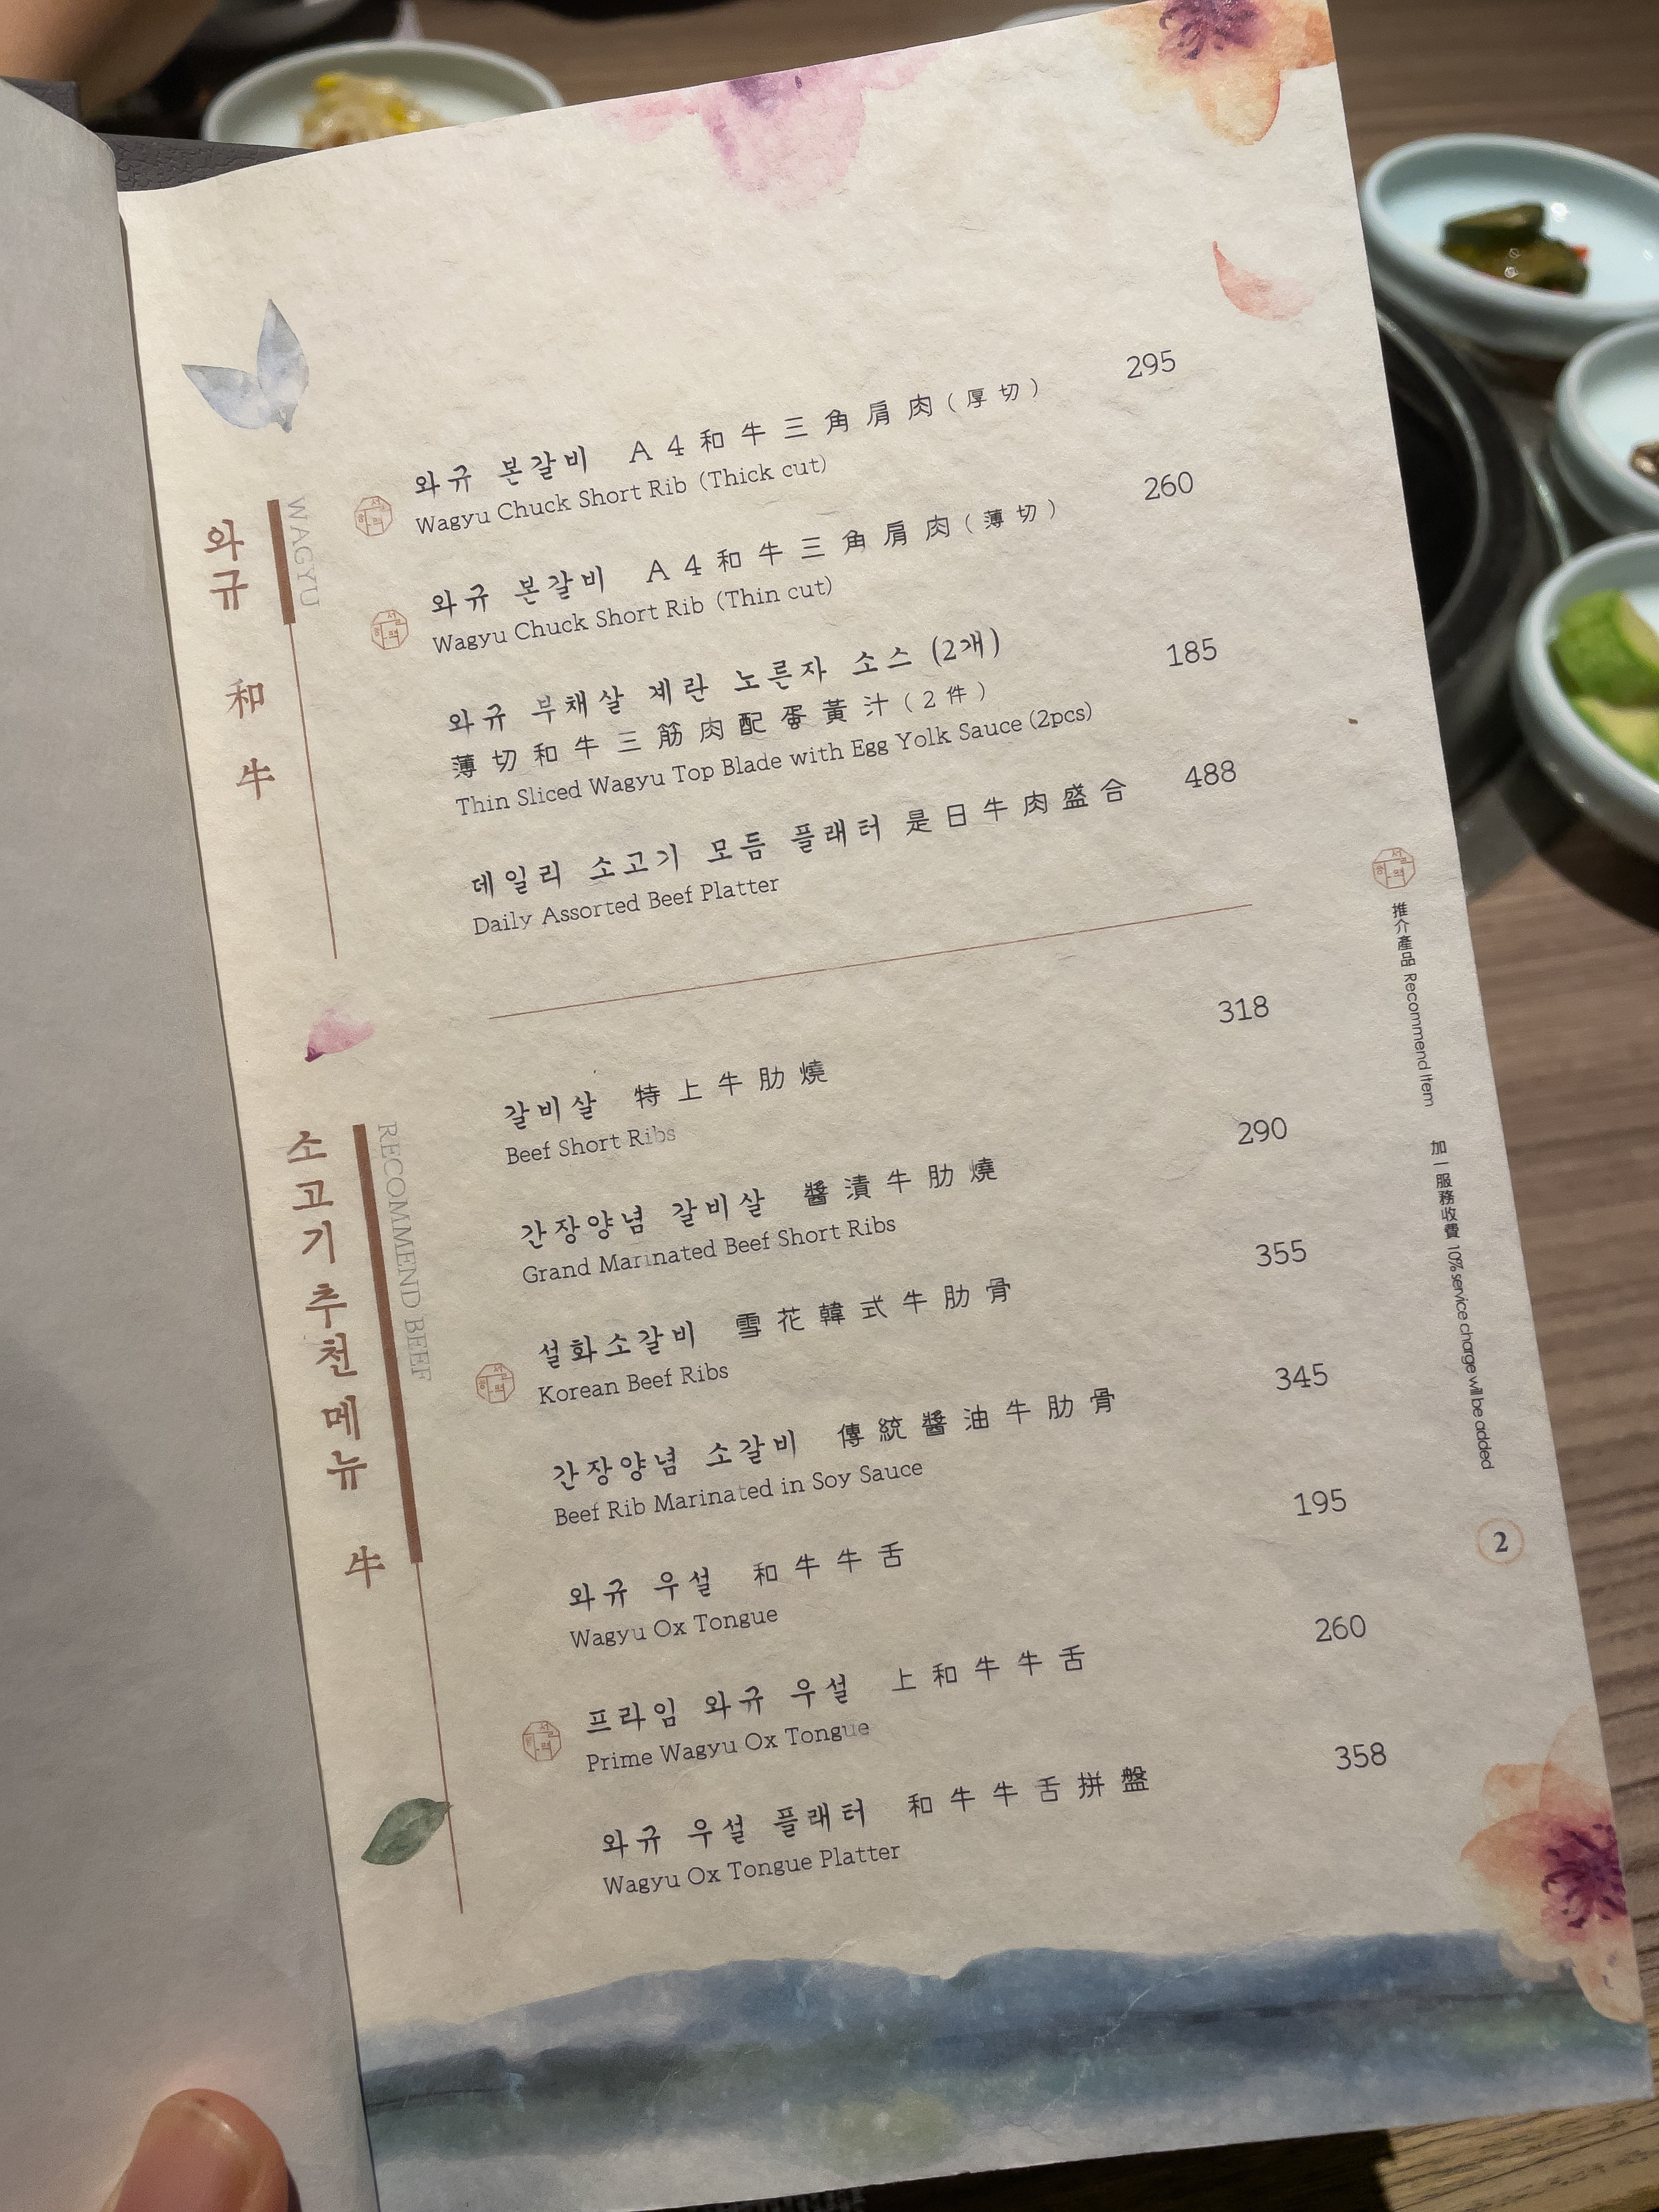 와규 和牛
WAGYU
와규 본갈비 A4和牛三角肩肉(厚切) 295
Wagyu Chuck Short Rib (Thick cut)
와규 본갈비 A4和牛三角肩肉(薄切) 260
Wagyu Chuck Short Rib (Thin cut)
와규 부채살 계란 노른자 소스 (2개) 185
薄切和牛三筋肉配蛋黃汁(2件)
Thin Sliced Wagyu Top Blade with Egg Yolk Sauce (2pcs)
데일리 소고기 모듬 플래터 是日牛肉盛合 488
Daily Assorted Beef Platter
소고기추천메뉴 牛
RECOMMEND BEEF
갈비살 特上牛肋燒 318
Beef Short Ribs
간장양념 갈비살 醬漬牛肋燒 290
Grand Marinated Beef Short Ribs
설화소갈비 雪花韓式牛肋骨 355
Korean Beef Ribs
간장양념 소갈비 傳統醬油牛肋骨 345
Beef Rib Marinated in Soy Sauce
와규 우설 和牛牛舌 195
Wagyu Ox Tongue
프라임 와규 우설 上和牛牛舌 260
Prime Wagyu Ox Tongue
와규 우설 플래터 和牛牛舌拼盤 358
Wagyu Ox Tongue Platter
推介產品 Recommend Item
加一服務收費 10% service charge will be added
2